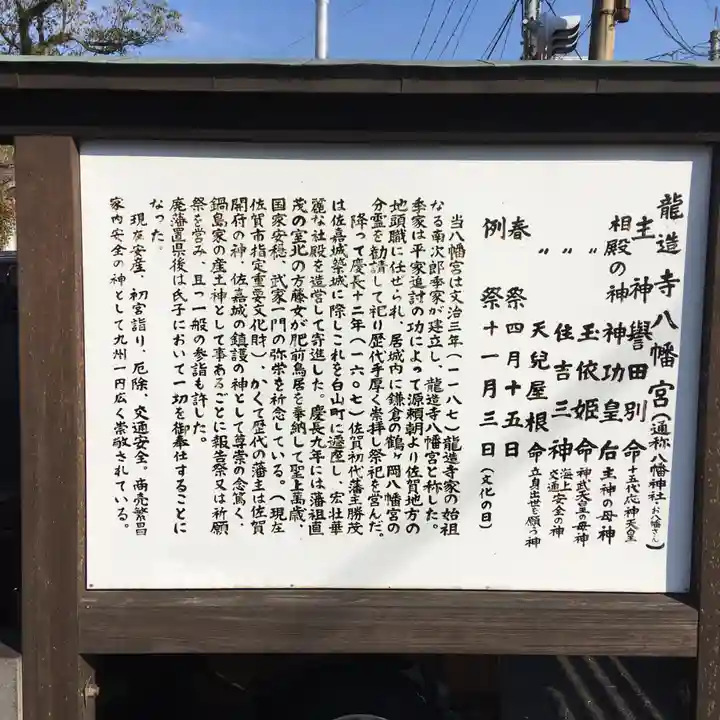 龍造寺八幡宮(通称八幡神社 お八幡さん)
主神 譽田別命 十五代応神天皇
相殿の神 神功皇后 主神の母神
〃 玉依姫命 神武天皇の母神
〃 住吉三神 海上交通安全の神
〃 天兒屋根命 立身出世を願う神
春祭 四月十五日
例祭 十一月三日(文化の日)
当八幡宮は文治三年(一一八七)龍造寺家の始祖
なる南次郎季家が建立し、龍造寺八幡宮と称した。
季家は平家追討の功によって源頼朝より佐賀地方の
地頭職に任ぜられ、居城内に鎌倉の鶴ヶ岡八幡宮の
分霊を勧請して祀り歴代手厚く崇拝し祭祀を営んだ。
降って慶長十二年(一六〇七)佐賀初代藩主勝茂
は佐嘉城築城に際しこれを白山町に遷座し、宏壮華
麗な社殿を造営して寄進した。慶長九年には藩祖直
茂の室北の方藤女が肥前鳥居を奉納して聖上萬歳、
国家安穏、武家一門の弥栄を祈念している。(現在
佐賀市指定重要文化財)、かくて歴代の藩主は佐賀
開府の神、佐嘉城の鎮護の神として尊崇の念篤く、
鍋島家の産土神として事あるごとに報告祭又は祈願
祭を営み、且つ一般の参詣も許した。
廃藩置県後は氏子において一切を御奉仕することに
なった。
現在安産、初宮詣り、厄除、交通安全。商売繁昌
家内安全の神として九州一円広く崇敬されている。